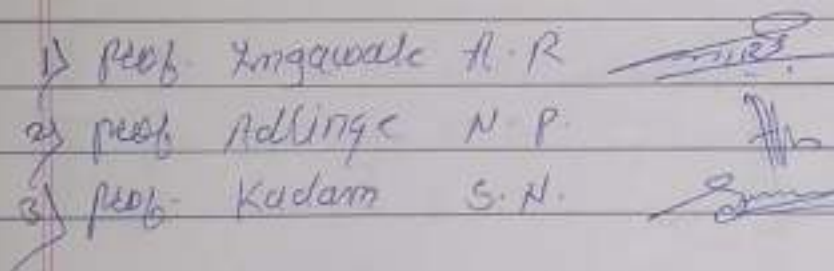 1) Prof. Ingawale A. R
2) Prof. Adlinge N. P.
3) Prof. Kadam S. N.